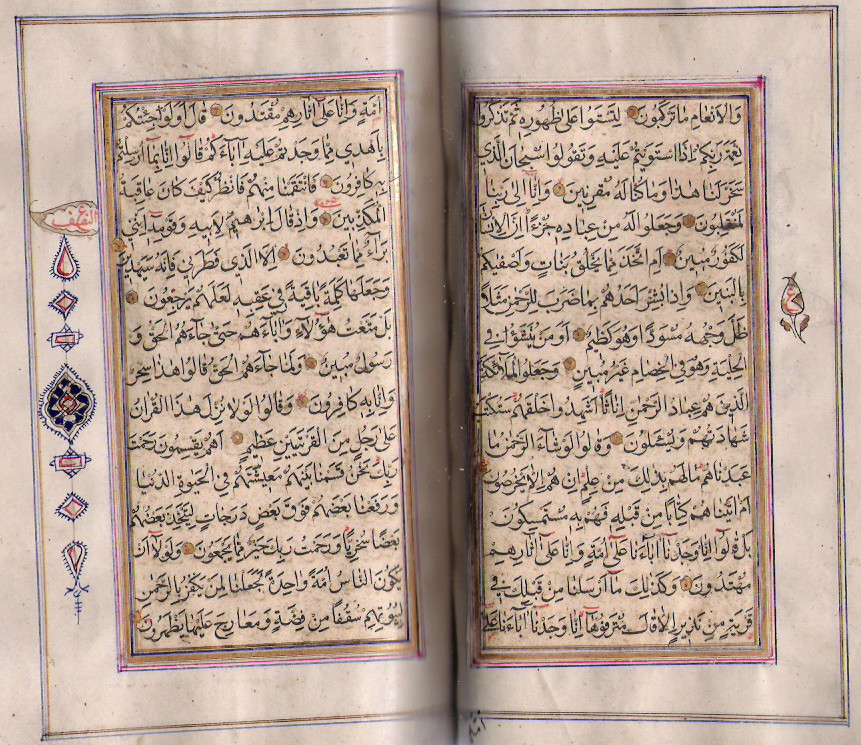 وَالْاَنْعَامِ مَا تَرْكَبُونَ لِتَسْتَوُا عَلٰى ظُهُورِهِ ثُمَّ تَذْكُرُوا
نِعْمَةَ رَبِّكُمْ اِذَا اسْتَوَيْتُمْ عَلَيْهِ وَتَقُولُوا سُبْحَانَ الَّذِي
سَخَّرَ لَنَا هٰذَا وَمَا كُنَّا لَهُ مُقْرِنِينَ وَاِنَّا اِلٰى رَبِّنَا
لَمُنْقَلِبُونَ وَجَعَلُوا لَهُ مِنْ عِبَادِهِ جُزْءًا اِنَّ الْاِنْسَانَ
لَكَفُورٌ مُبِينٌ اَمِ اتَّخَذَ مِمَّا يَخْلُقُ بَنَاتٍ وَاَصْفٰيكُمْ
بِالْبَنِينَ وَاِذَا بُشِّرَ اَحَدُهُمْ بِمَا ضَرَبَ لِلرَّحْمٰنِ مَثَلًا
ظَلَّ وَجْهُهُ مُسْوَدًّا وَهُوَ كَظِيمٌ اَوَمَنْ يُنَشَّؤُا فِي
الْحِلْيَةِ وَهُوَ فِي الْخِصَامِ غَيْرُ مُبِينٍ وَجَعَلُوا الْمَلٰئِكَةَ
الَّذِينَ هُمْ عِبَادُ الرَّحْمٰنِ اِنَاثًا اَشَهِدُوا خَلْقَهُمْ سَتُكْتَبُ
شَهَادَتُهُمْ وَيُسْئَلُونَ وَقَالُوا لَوْ شَاءَ الرَّحْمٰنُ مَا
عَبَدْنَاهُمْ مَا لَهُمْ بِذٰلِكَ مِنْ عِلْمٍ اِنْ هُمْ اِلَّا يَخْرُصُونَ
اَمْ اٰتَيْنَاهُمْ كِتَابًا مِنْ قَبْلِهِ فَهُمْ بِهِ مُسْتَمْسِكُونَ
بَلْ قَالُوا اِنَّا وَجَدْنَا اٰبَاءَنَا عَلٰى اُمَّةٍ وَاِنَّا عَلٰى اٰثَارِهِمْ
مُهْتَدُونَ وَكَذٰلِكَ مَا اَرْسَلْنَا مِنْ قَبْلِكَ فِي
قَرْيَةٍ مِنْ نَذِيرٍ اِلَّا قَالَ مُتْرَفُوهَا اِنَّا وَجَدْنَا اٰبَاءَنَا عَلٰى
اُمَّةٍ وَاِنَّا عَلٰى اٰثَارِهِمْ مُقْتَدُونَ قَالَ اَوَلَوْ جِئْتُكُمْ
بِاَهْدٰي مِمَّا وَجَدْتُمْ عَلَيْهِ اٰبَاءَكُمْ قَالُوا اِنَّا بِمَا اُرْسِلْتُمْ
بِهِ كَافِرُونَ فَانْتَقَمْنَا مِنْهُمْ فَانْظُرْ كَيْفَ كَانَ عَاقِبَةُ
الْمُكَذِّبِينَ وَاِذْ قَالَ اِبْرٰهِيمُ لِاَبِيهِ وَقَوْمِهِ اِنَّنِي
بَرَاءٌ مِمَّا تَعْبُدُونَ اِلَّا الَّذِي فَطَرَنِي فَاِنَّهُ سَيَهْدِينِ
وَجَعَلَهَا كَلِمَةً بَاقِيَةً فِي عَقِبِهِ لَعَلَّهُمْ يَرْجِعُونَ
بَلْ مَتَّعْتُ هٰؤُلَاءِ وَاٰبَاءَهُمْ حَتّٰى جَاءَهُمُ الْحَقُّ وَ
رَسُولٌ مُبِينٌ وَلَمَّا جَاءَهُمُ الْحَقُّ قَالُوا هٰذَا سِحْرٌ
وَاِنَّا بِهِ كَافِرُونَ وَقَالُوا لَوْلَا نُزِّلَ هٰذَا الْقُرْاٰنُ
عَلٰى رَجُلٍ مِنَ الْقَرْيَتَيْنِ عَظِيمٍ اَهُمْ يَقْسِمُونَ رَحْمَتَ
رَبِّكَ نَحْنُ قَسَمْنَا بَيْنَهُمْ مَعِيشَتَهُمْ فِي الْحَيٰوةِ الدُّنْيَا
وَرَفَعْنَا بَعْضَهُمْ فَوْقَ بَعْضٍ دَرَجَاتٍ لِيَتَّخِذَ بَعْضُهُمْ
بَعْضًا سُخْرِيًّا وَرَحْمَتُ رَبِّكَ خَيْرٌ مِمَّا يَجْمَعُونَ وَلَوْلَا اَنْ
يَكُونَ النَّاسُ اُمَّةً وَاحِدَةً لَجَعَلْنَا لِمَنْ يَكْفُرُ بِالرَّحْمٰنِ
لِبُيُوتِهِمْ سُقُفًا مِنْ فِضَّةٍ وَمَعَارِجَ عَلَيْهَا يَظْهَرُونَ